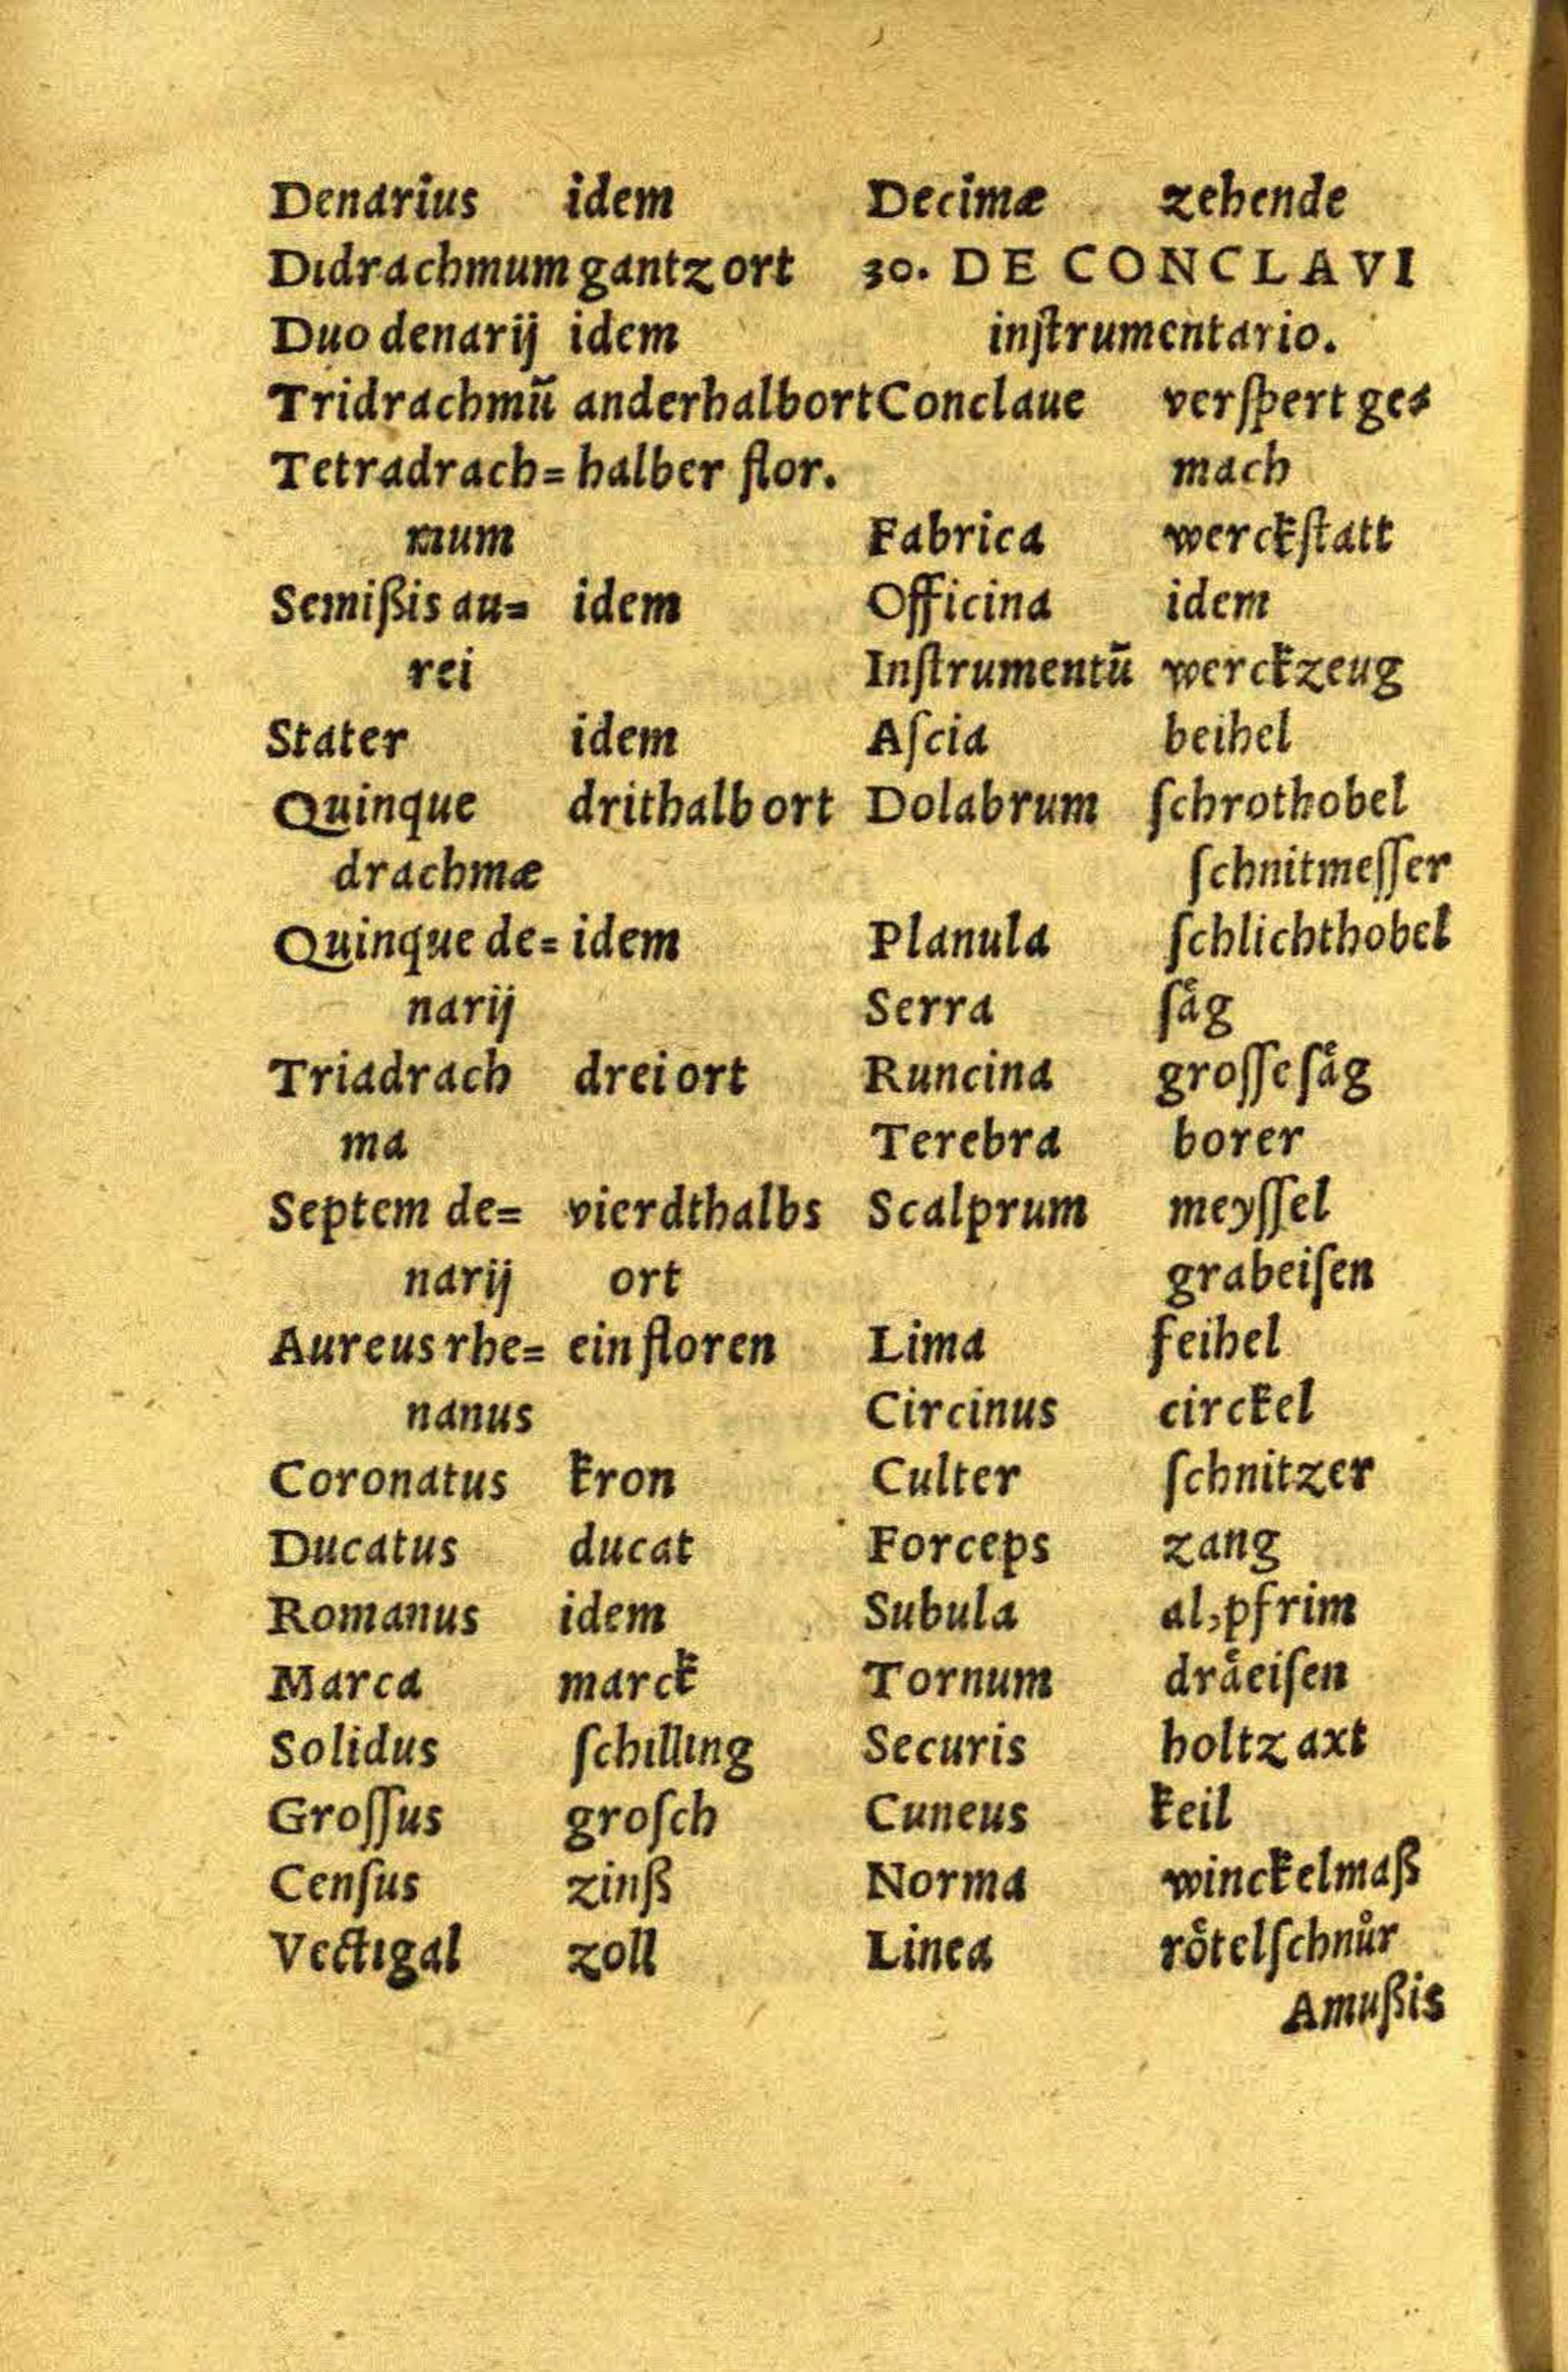 Denarius idem
Didrachmum gantz ort
Duo denarij idem
Tridrachmū anderhalbort
Tetradrach= halber flor.
mum
Semißis au= idem
rei
Stater idem
Quinque drithalb ort
drachmæ
Quinque de= idem
narij
Triadrach drei ort
ma
Septem de= vierdthalbs
narij ort
Aureus rhe= ein floren
nanus
Coronatus kron
Ducatus ducat
Romanus idem
Marca marck
Solidus ſchilling
Groſſus groſch
Cenſus zinß
Vectigal zoll
Decimæ zehende
30. DE CONCLAVI
inſtrumentario.
Conclaue verſpert ge=
mach
Fabrica werckſtatt
Officina idem
Inſtrumentū werckzeug
Aſcia beihel
Dolabrum ſchrothobel
ſchnitmeſſer
Planula ſchlichthobel
Serra ſåg
Runcina groſſe ſåg
Terebra borer
Scalprum meyſſel
grabeiſen
Lima feihel
Circinus circkel
Culter ſchnitzer
Forceps zang
Subula al,pfrim
Tornum dråeiſen
Securis holtz axt
Cuneus keil
Norma winckelmaß
Linea rôtelſchnůr
Amußis